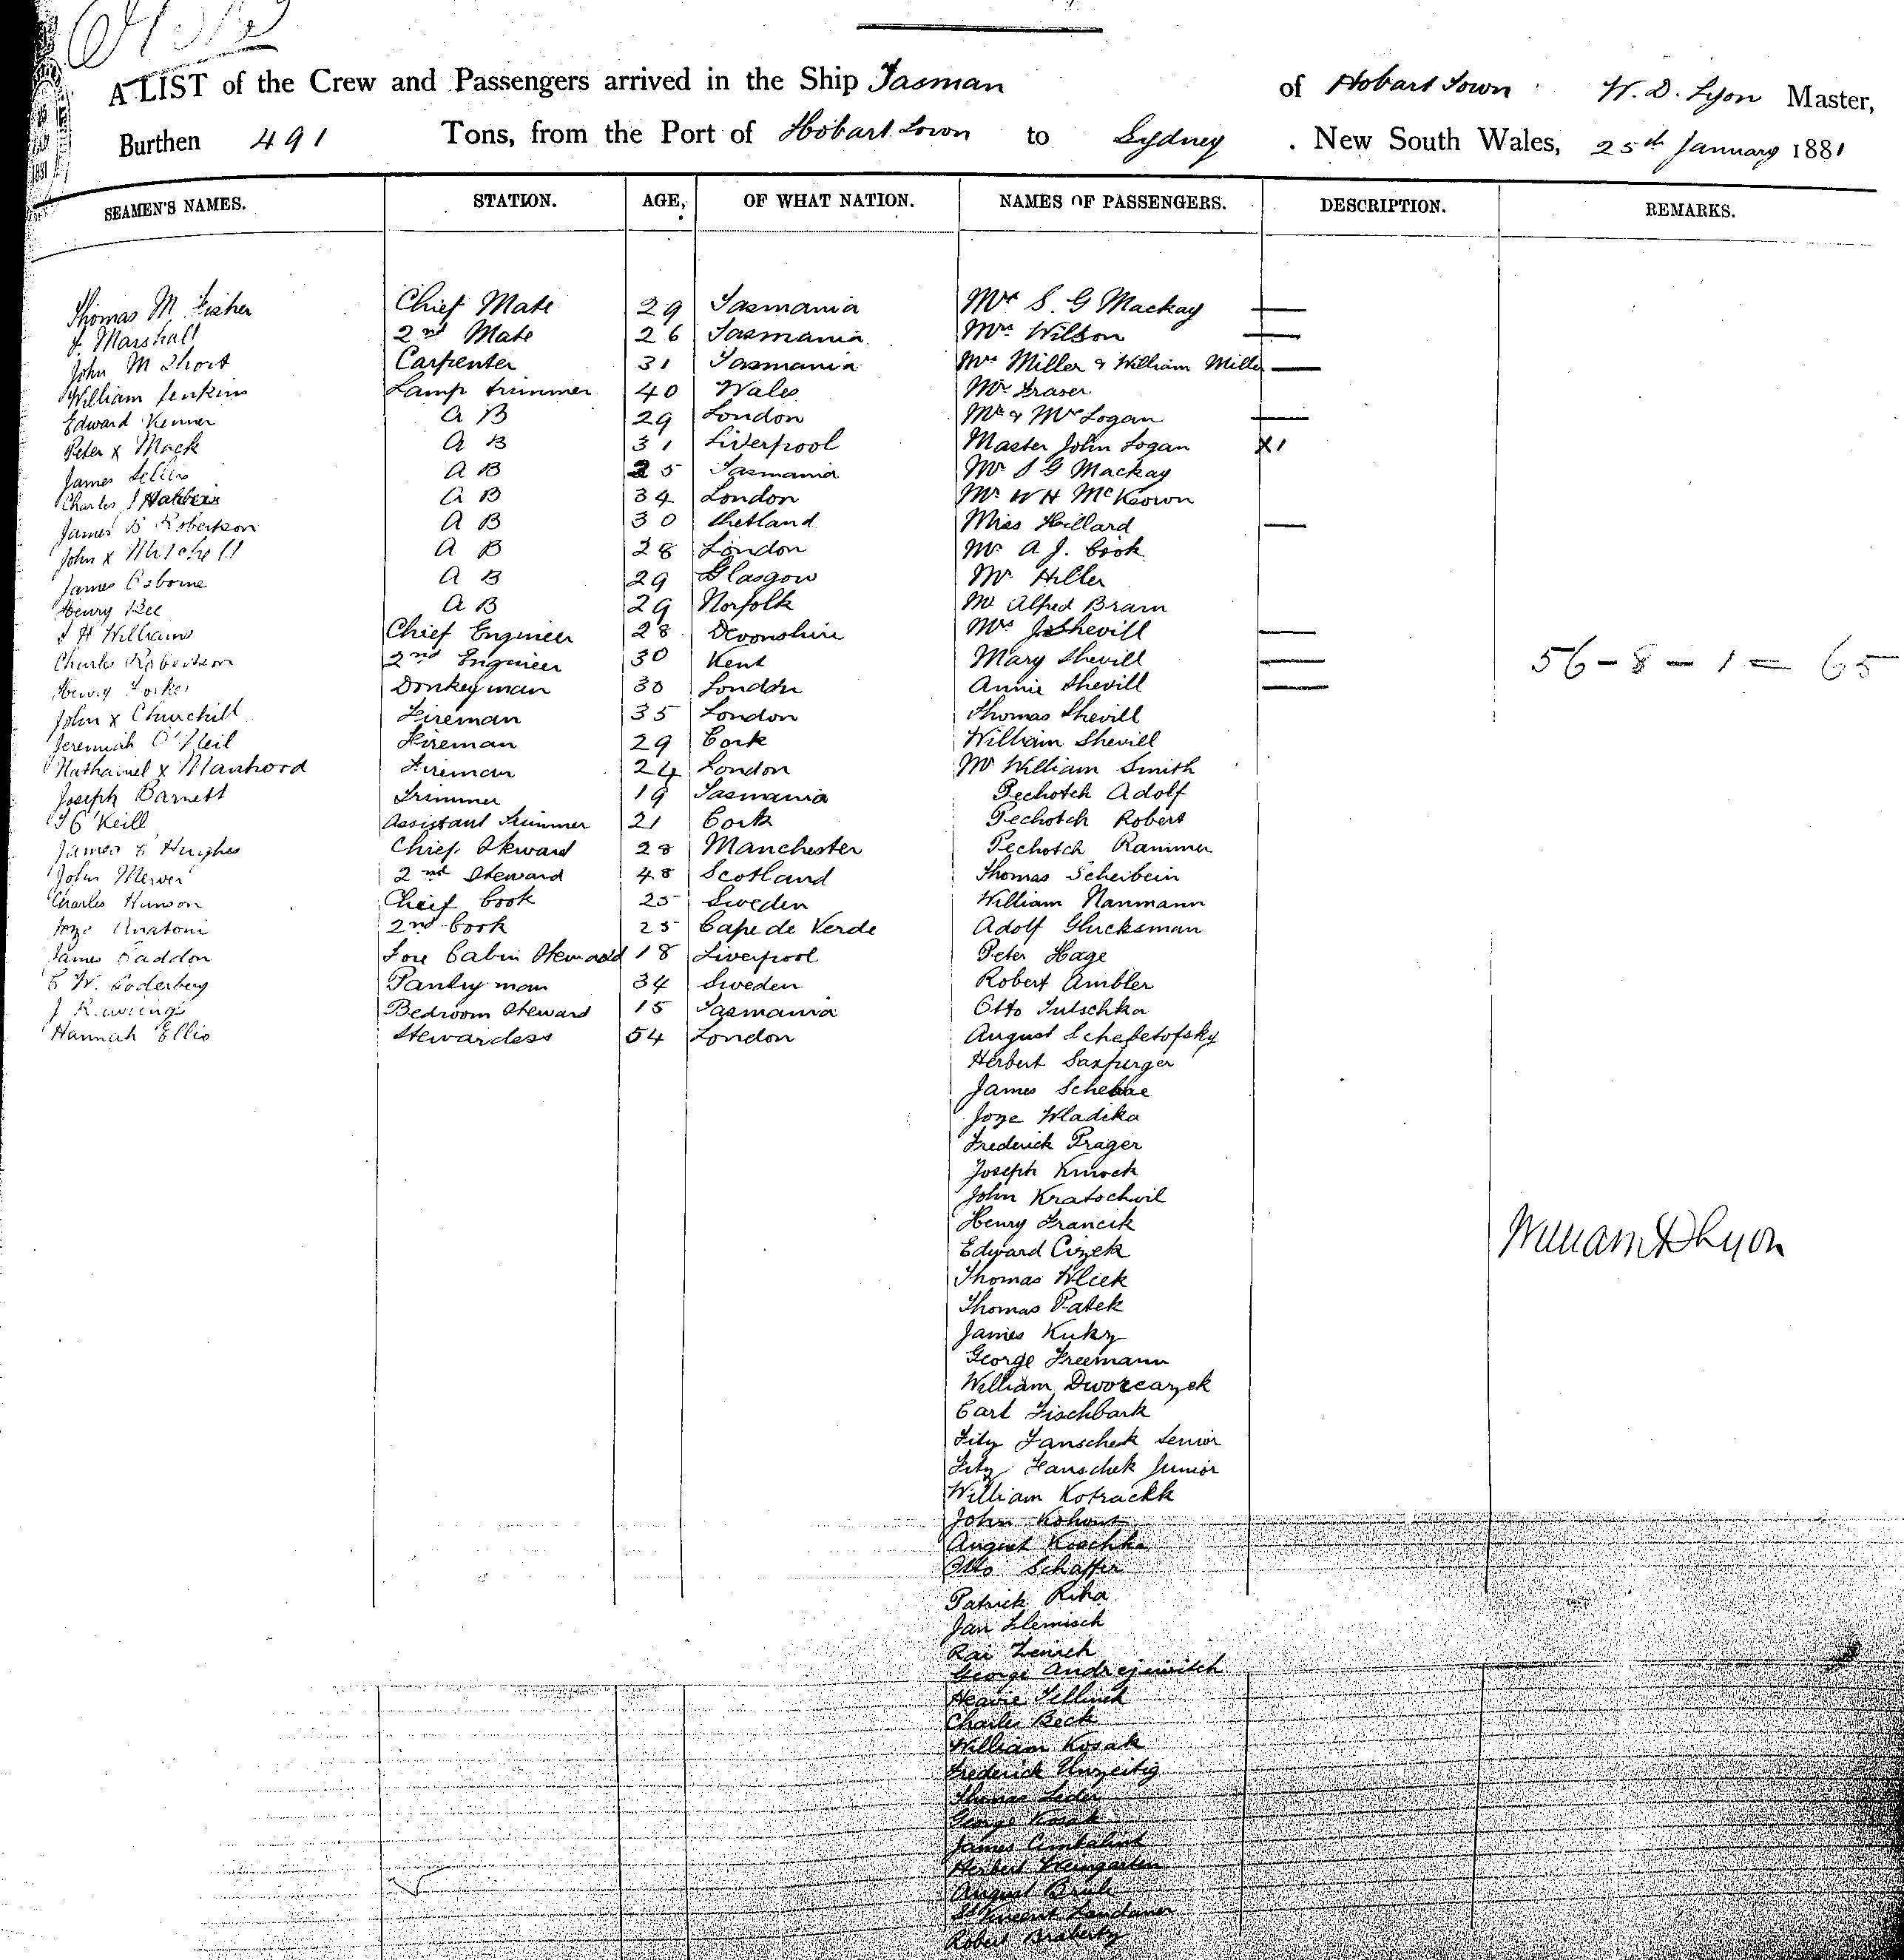 A LIST of the Crew and Passengers arrived in the Ship Tasman of Hobart Town W. D. Lyon Master,
Burthen 491 Tons, from the Port of Hobart Town to Sydney. New South Wales, 25th January 1881
SEAMEN'S NAMES. STATION. AGE, OF WHAT NATION. NAMES OF PASSENGERS. DESCRIPTION. REMARKS.
Thomas M Fisher Chief Mate 29 Tasmania Mrs S. G Mackay —
J. Marshall 2nd Mate 26 Tasmania Mrs Wilson —
John M Short Carpenter 31 Tasmania Mrs Miller & William Miller —
William Jenkins Lamp trimmer 40 Wales Mr Fraser
Edward Kenner A B 29 London Mr & Mrs Logan —
Peter x Mack A B 31 Liverpool Master John Logan X1
James A B 25 Tasmania Mr S G Mackay
Charles A B 34 London Mr W H McKeown
James B Robertson A B 30 Shetland Miss Hillard —
John x Mitchell A B 28 London Mr A J. Cook
James Osborne A B 29 Glasgow Mr Hiller
Henry Bee A B 29 Norfolk Mr Alfred Bram
J H Williams Chief Engineer 28 Devonshire Mrs Shevill —
Charles Robertson 2nd Engineer 30 Kent Mary Shevill — 56-8-1 = 65
Henry Donkeyman 30 London Annie Shevill —
John x Churchill Fireman 35 London Thomas Shevill
Jeremiah O'Neil Fireman 29 Cork William Shevill
Nathaniel x Manhood Fireman 24 London Mr William Smith
Joseph Barnett Trimmer 19 Tasmania Pechotch Adolf
J O'Keill Assistant Trimmer 21 Cork Pechotch Robert
James Hughes Chief Steward 28 Manchester Pechotch Ranimer
John Mewer 2nd Steward 48 Scotland Thomas Scheibein
Charles Hanson Chief Cook 25 Sweden William Nanmann
Joze Anatoni 2nd Cook 25 Cape de Verde Adolf Glucksman
James Faddon Fore Cabin Steward 18 Liverpool Peter Hage
C W. Soderberg Pantry man 34 Sweden Robert Ambler
J Rawlings Bedroom Steward 15 Tasmania Otto Tutschka
Hannah Ellis Stewardess 54 London August Schebetofsky
Herbert Saxpurger
James
Joze Wladika
Frederick Prager
Joseph Kmoch
John Kratochwil
Henry Francik
Edward Cizek
William D Lyon
Thomas Wlick
Thomas Patek
James Kukz
George Freemann
William Dworcazek
Carl Fischbark
Fitz Hanschek Senior
Fitz Hanschek Junior
William Kotrackk
John Kohout
August Koschka
Otto Schaffer
Patrick Riha
Jan Klemisch
Rai Zenich
George Andrejewitch
Tellinek
Charles Beck
William Kosak
Frederick Unzeitig
Thomas Leder
George Kosak
James
Herbert Weingarten
August
Vincent Landauer
Robert